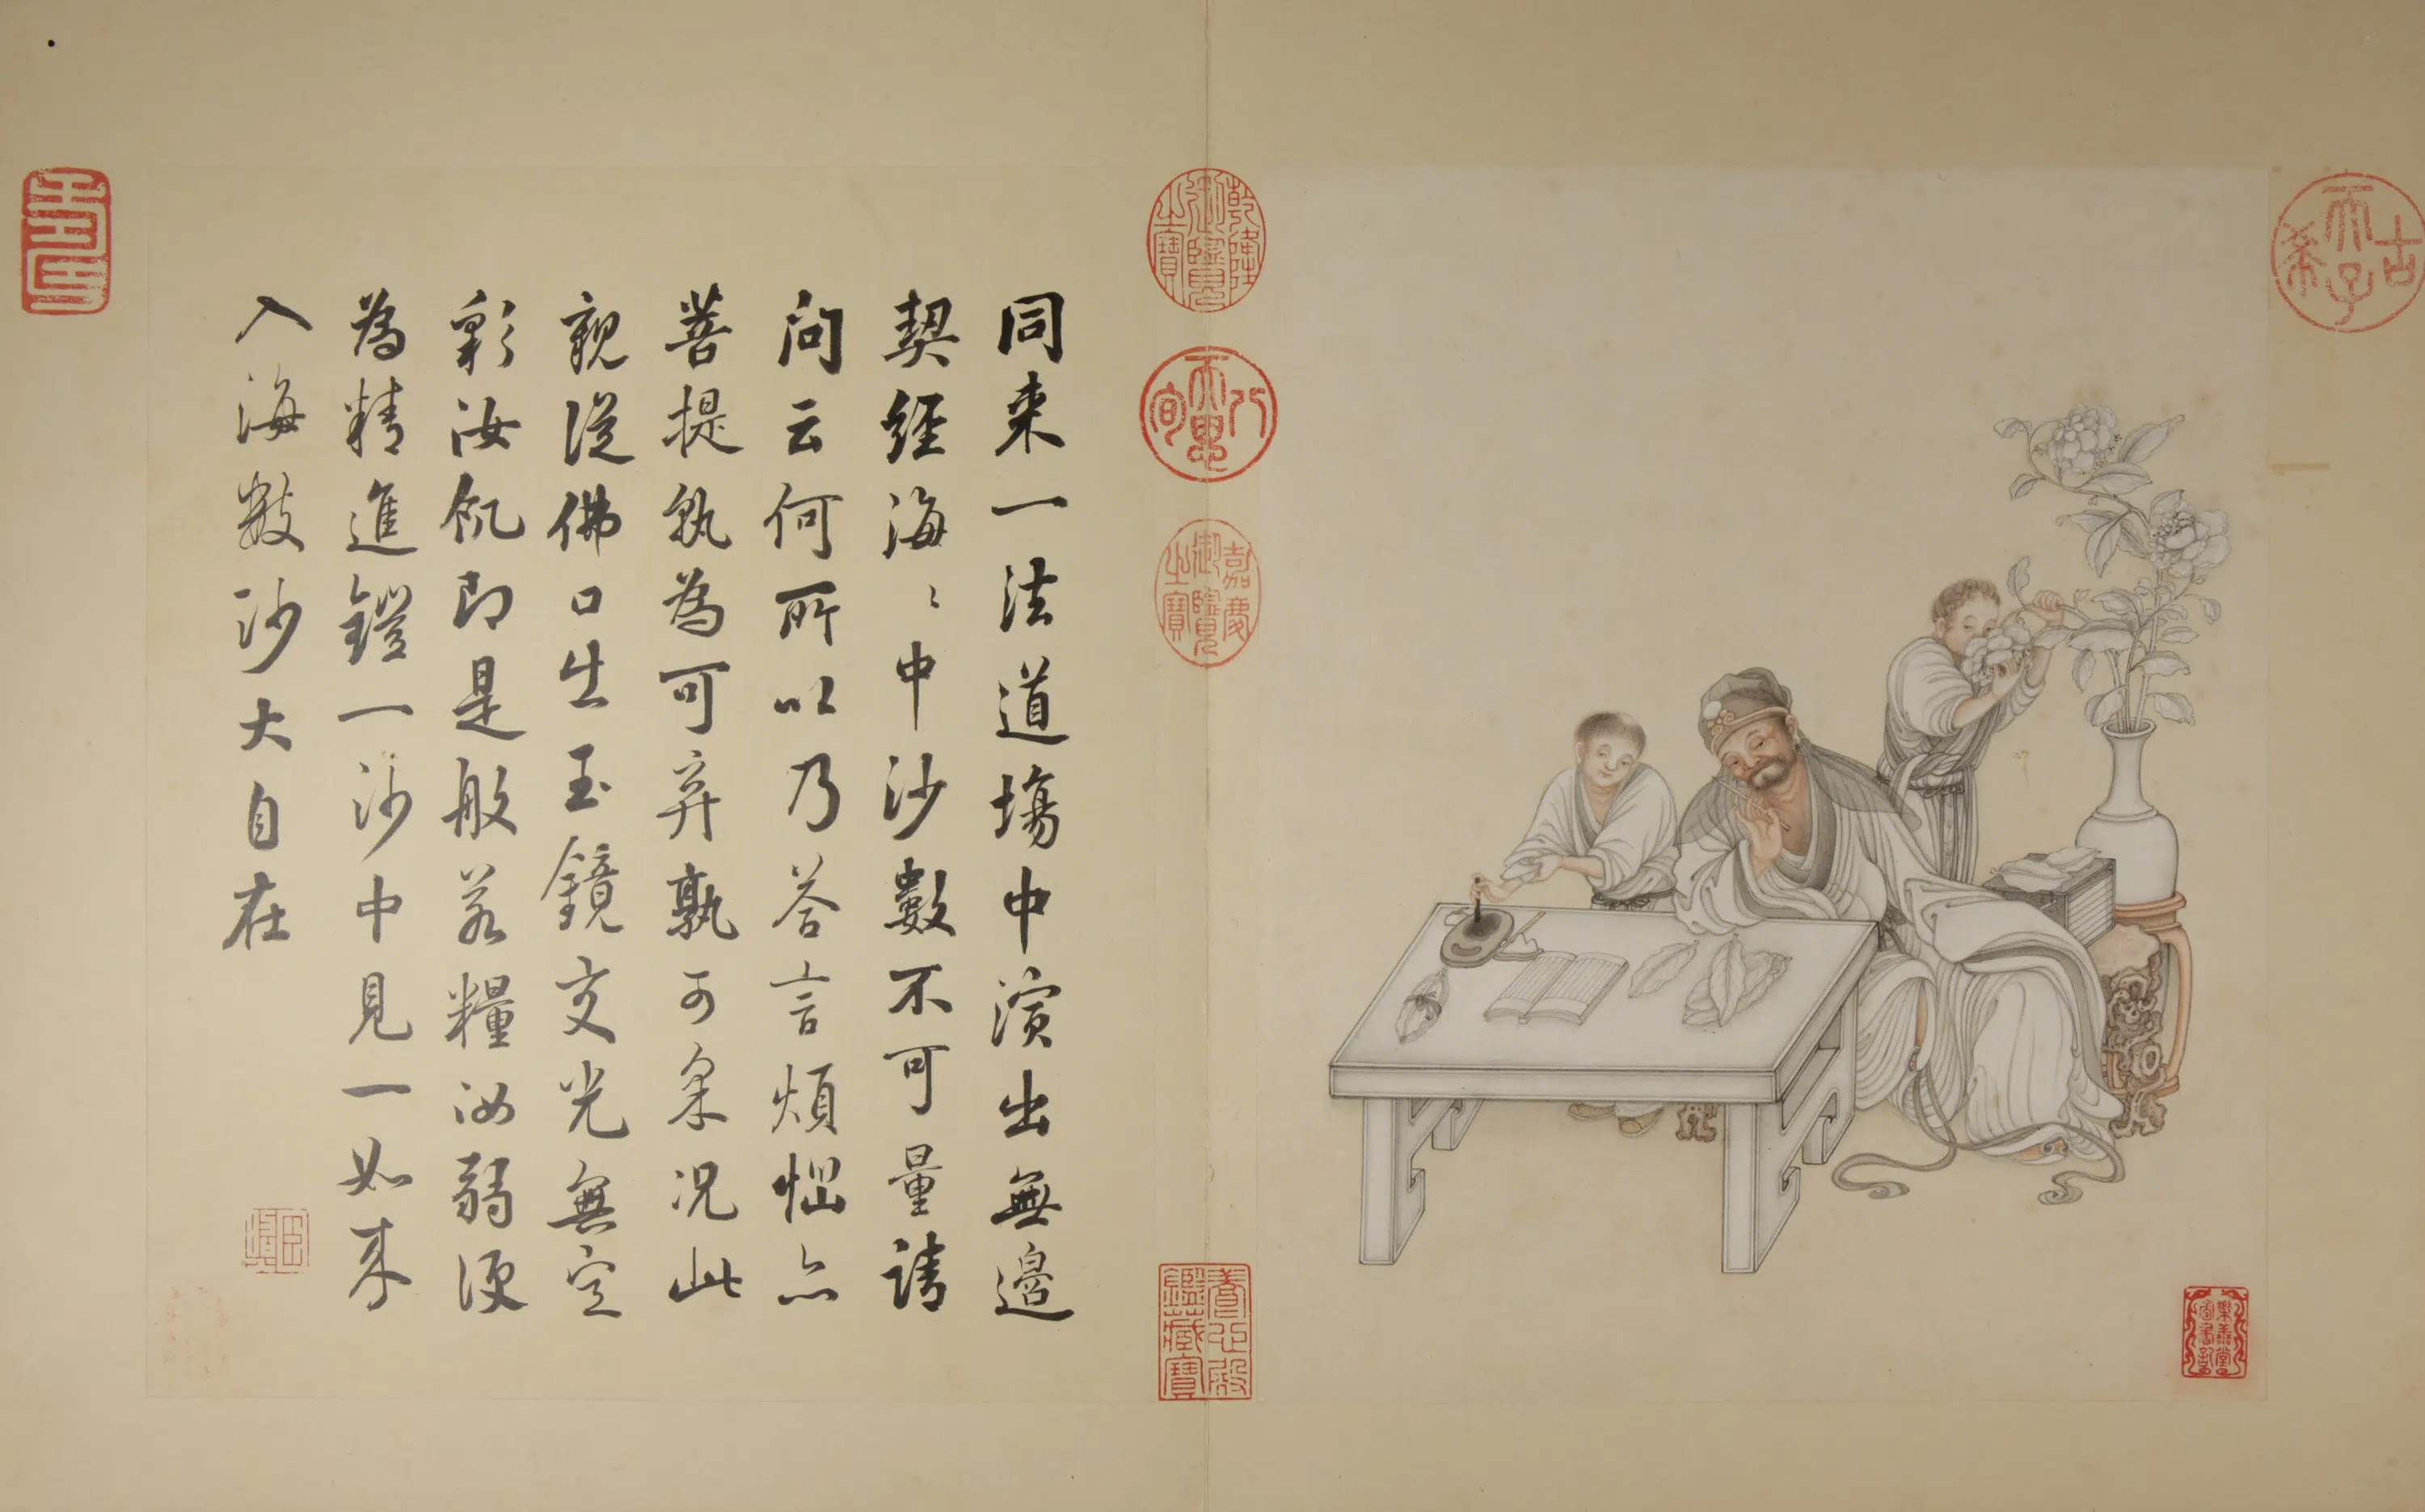 同来一法道場中演出無邊
契經海〻中沙數不可量請
問云何所以乃答言煩惱亦
菩提孰為可弃孰可采況此
親從佛口生玉鏡交光無定
彩汝飢即是般若糧汝弱便
為精進鎧一沙中見一如来
入海數沙大自在
壽
乾隆御覽之寶
八徵耄念
嘉慶御覽之寶
養心殿鑑藏寶
古希天子
樂善堂圖書記